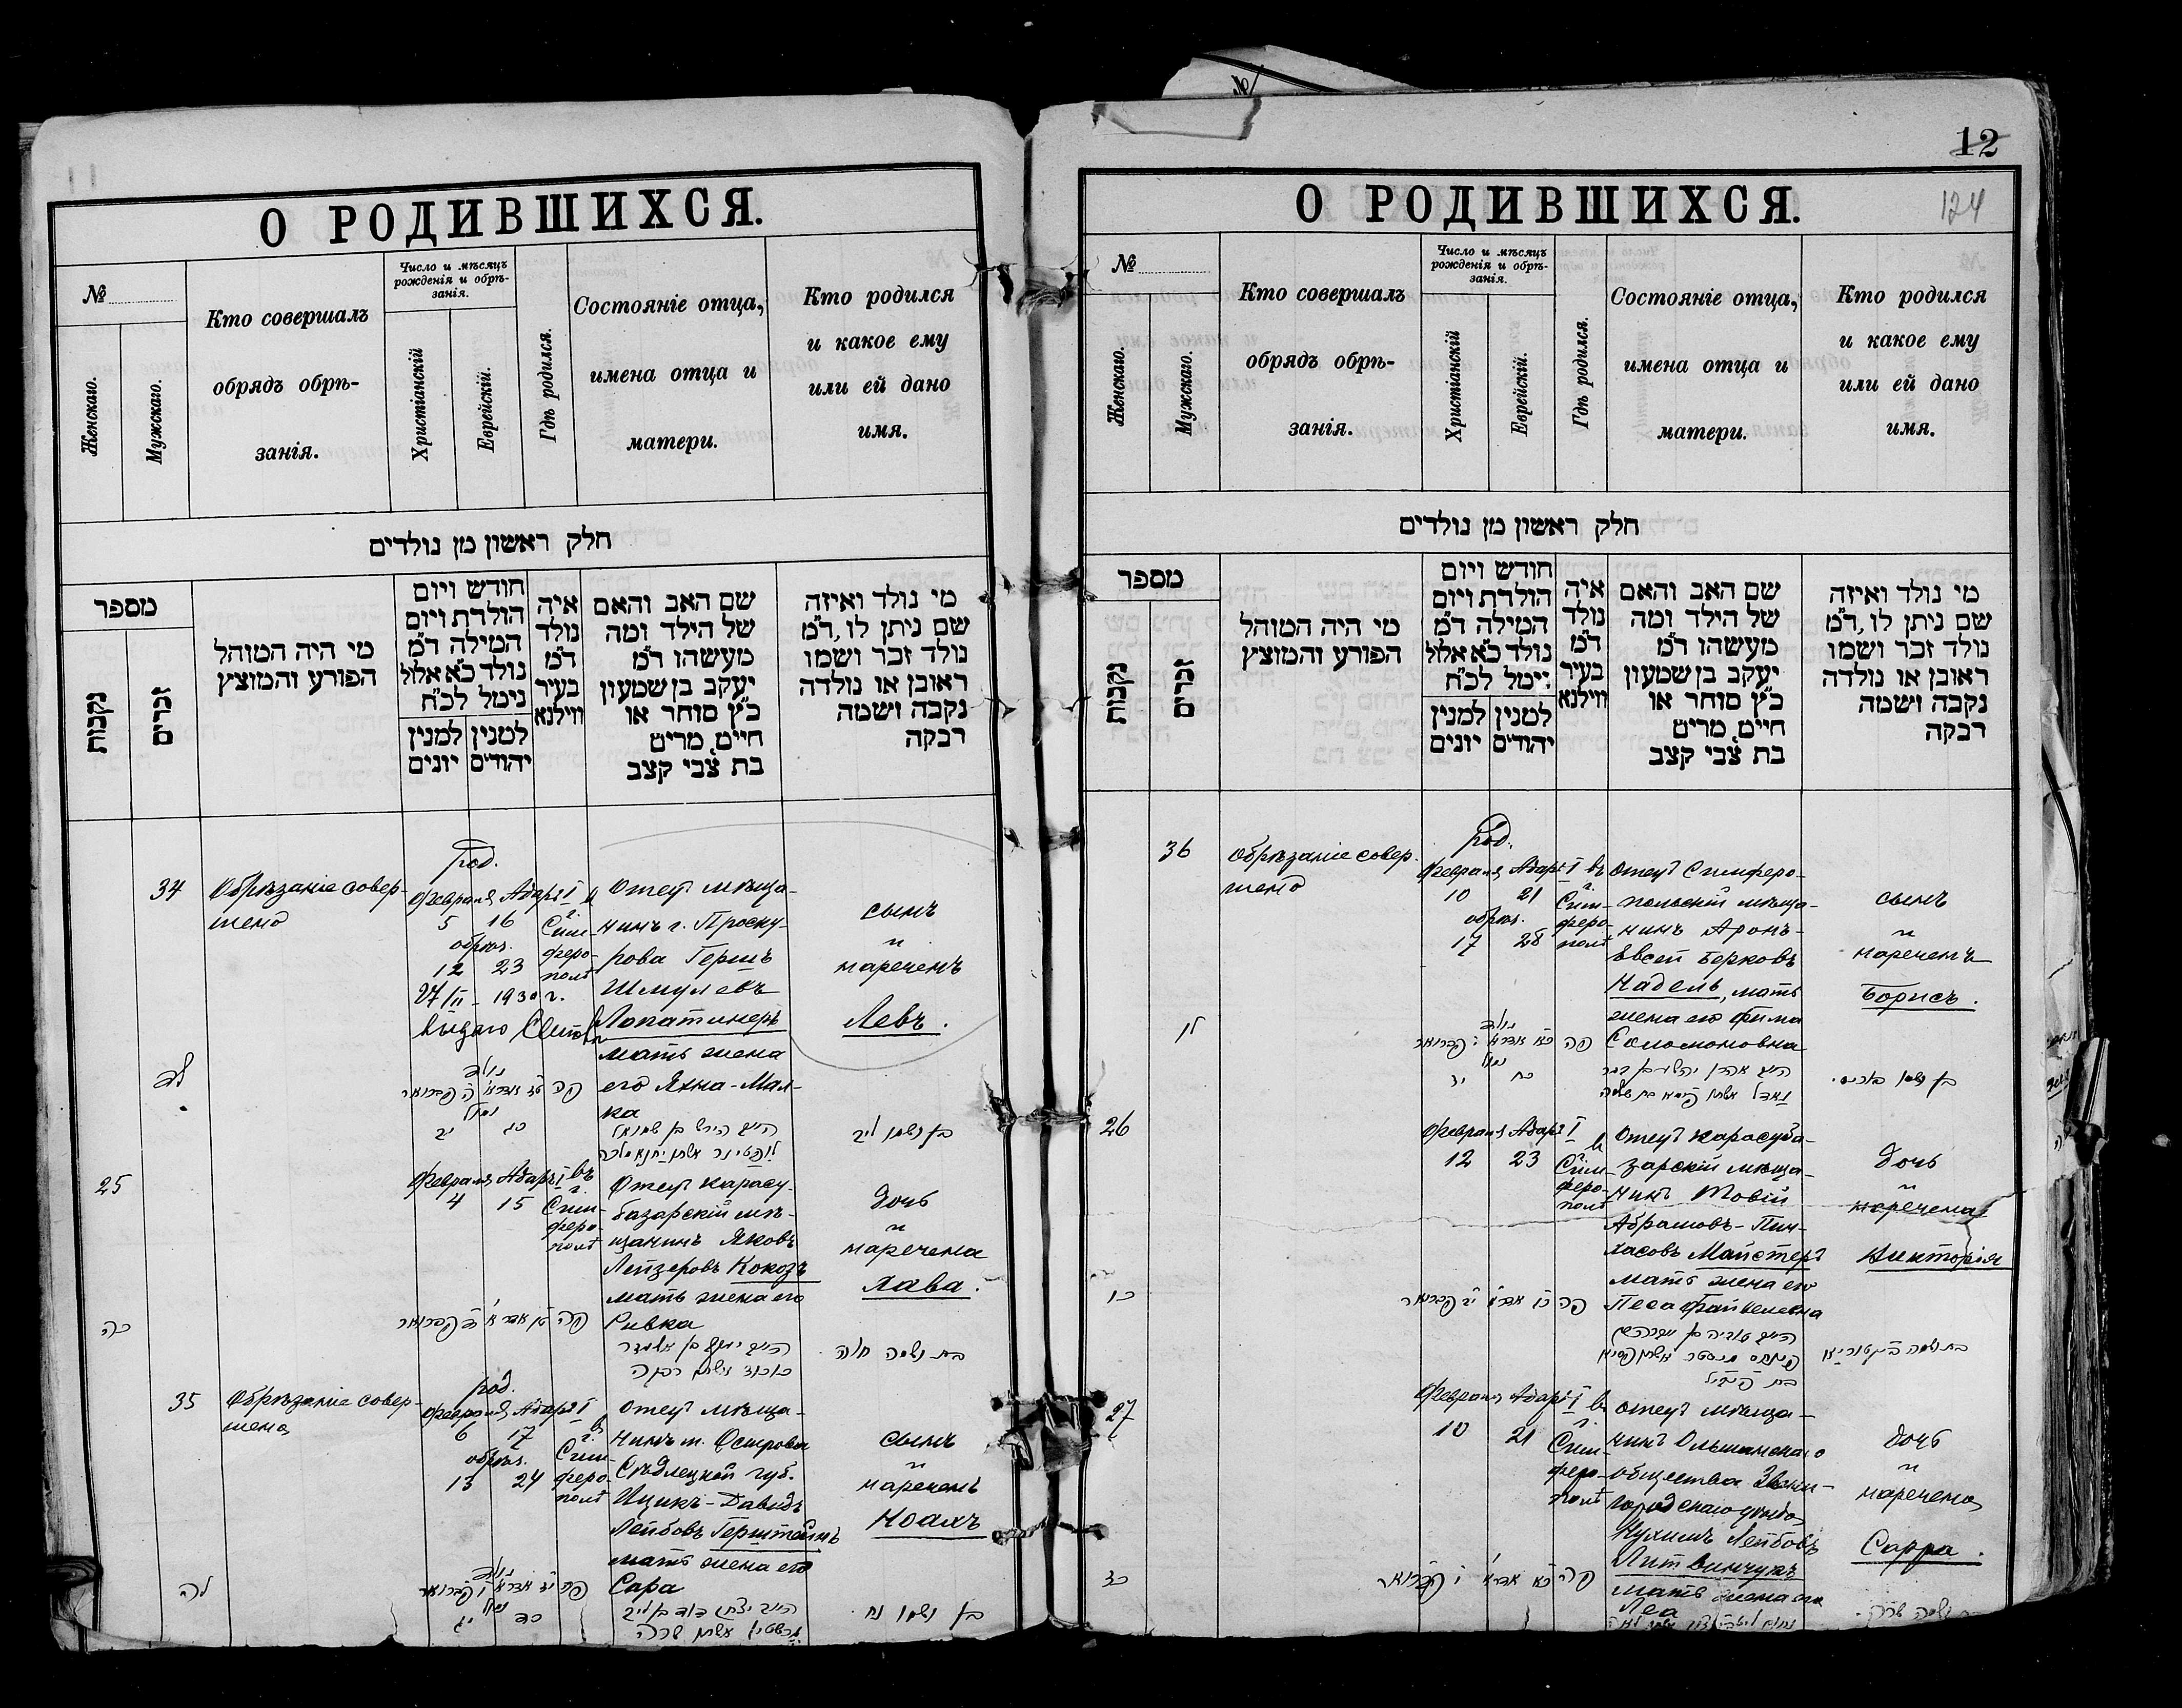 О РОДИВШИХСЯ.
№
Женскаго.
Мужскаго.
Кто совершалъ
обрядъ обрѣ-
занія.
Число и мѣсяцъ
рожденія и обрѣ-
занія.
Христіанскій
Еврейскій.
Гдѣ родился.
Состояніе отца,
имена отца и
матери.
Кто родился
и какое ему
или ей дано
имя.
חלק ראשון מן נולדים
מספר
נקבות
זכרים
מי היה המוהל
הפורע והמוצץ
חודש ויום
הולדת ויום
המילה ד״מ
נולד כ״א אלול
נימל לכ״ח
למנין למנין
יהודים יונים
איה
נולד
ד״מ
בעיר
ווילנא
שם האב והאם
של הילד ומה
מעשהו ד״מ
יעקב בן שמעון
כ״ץ סוחר או
חיים, מרים
בת צבי קצב
מי נולד ואיזה
שם ניתן לו, ד״מ
נולד זכר ושמו
ראובן או נולדה
נקבה ושמה
רבקה
34
Обрѣзаніе совер-
шено
род.
Февраля Адаръ I
5 16
обрѣз.
12 23
27/II - 1930 г.
в г.
Сим-
феро-
полѣ
Отецъ мѣща-
нинъ г. Проску-
рова Гершъ
Шмулевъ
Лопатинеръ
мать жена
его Яхна-Мал-
ка
сынъ
и
нареченъ
Левъ.
לד
נולד
פה
נימול
כג יב
בן ושמו ליב
25
Февраля Адаръ I въ
4 15
г.
Сим-
феро-
полѣ
Отецъ Карасу-
базарскій мѣ-
щанинъ Яковъ
Лейзеровъ Кокозъ
мать жена его
Ривка
дочь
и
наречена
Хава.
כה
פה
בת ושמה חוה
35
Обрѣзаніе совер-
шено
род.
Февраля Адаръ I
6 17
обрѣз.
13 24
в г.
Сим-
феро-
полѣ
Отецъ мѣща-
нинъ п. Острова
Сѣдлецкой губ.
Ицикъ-Давидъ
Лейбовъ Герштейнъ
мать жена его
Сара
сынъ
и
нареченъ
Ноахъ
לה
נולד
פה
נימול
כד יג
בן ושמו נח
12
124
О РОДИВШИХСЯ.
№
Женскаго.
Мужскаго.
Кто совершалъ
обрядъ обрѣ-
занія.
Число и мѣсяцъ
рожденія и обрѣ-
занія.
Христіанскій
Еврейскій.
Гдѣ родился.
Состояніе отца,
имена отца и
матери.
Кто родился
и какое ему
или ей дано
имя.
חלק ראשון מן נולדים
מספר
נקבות
זכרים
מי היה המוהל
הפורע והמוצץ
חודש ויום
הולדת ויום
המילה ד״מ
נולד כ״א אלול
ימל לכ״ח
למנין למנין
יהודים יונים
איה
נולד
ד״מ
בעיר
ווילנא
שם האב והאם
של הילד ומה
מעשהו ד״מ
יעקב בן שמעון
כ״ץ סוחר או
חיים, מרים
בת צבי קצב
מי נולד ואיזה
שם ניתן לו, ד״מ
נולד זכר ושמו
ראובן או נולדה
נקבה ושמה
רבקה
36
Обрѣзаніе совер-
шено
род.
Февраля Адаръ I въ
10 21
обрѣз.
17 28
г.
Сим-
феро-
полѣ
Отецъ Симферо-
польскій мѣща-
нинъ Аронъ-
Евсей Берковъ
Надель, мать
жена его Фима
Соломоновна
сынъ
и
нареченъ
Борисъ.
לו
נולד
פה
נימול
כח יז
בן ושמו בוריס.
26
Февраля Адаръ I
12 23
в г.
Сим-
феро-
полѣ
Отецъ Карасуба-
зарскій мѣща-
нинъ Товій
Абрамовъ-Пин-
хасовъ Майстеръ
мать жена его
Песя Файвелевна
дочь
и
наречена
Викторія
כו
פה
בת ושמה ביקטוריא
27
Февраля Адаръ I въ
10 21
г.
Сим-
феро-
полѣ
Отецъ мѣща-
нинъ Ольшанскаго
общества Звени-
городскаго уѣзда
Нухимъ Лейбовъ
Литвинчукъ
мать жена его
Леа
дочь
и
наречена
Сарра.
כז
פה
ושמה שרה.